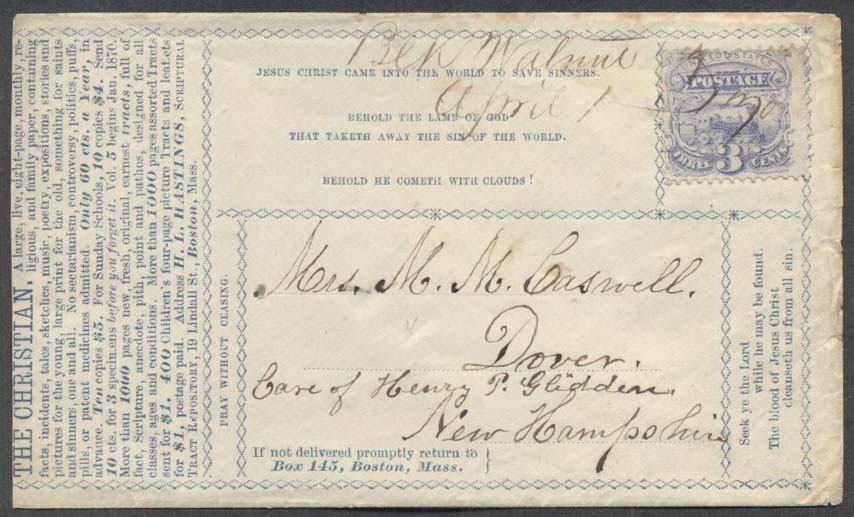 THE CHRISTIAN. A large, live, eight-page, monthly, re-
ligious, and family paper, containing
facts, incidents, tales, sketches, music, poetry, expositions, stories and
pictures for the young, large print for the old, something for saints
and sinners, one and all. No sectarianism, controversy, politics, puffs,
pills, or patent medicines admitted. Only 60 cts. a Year, in
advance. Ten copies $5. For Sunday Schools, 10 copies $4. Send
10 cts. for 3 specimens before you forget it. Vol. 5 begins Jan. 1870.
More than 1000 pages new, fresh, original, earnest tracts, full of
fact, Scripture, anecdote, pith, point and pathos, designed for all
classes, ages and conditions. More than 1000 pages assorted Tracts
sent for $1. 400 Children's four-page picture Tracts and leaflets
for $1, postage paid. Address H. L. HASTINGS, SCRIPTURAL
TRACT REPOSITORY, 19 Lindall St., Boston, Mass.
PRAY WITHOUT CEASING.
Walnut
April 1
JESUS CHRIST CAME INTO THE WORLD TO SAVE SINNERS.
BEHOLD THE LAMB OF GOD
THAT TAKETH AWAY THE SIN OF THE WORLD.
BEHOLD HE COMETH WITH CLOUDS!
UNITED STATES
POSTAGE
THREE 3 CENTS
Mrs. M. M. Caswell.
Dover.
Care of Henry P. Glidden.
New Hampshire
If not delivered promptly return to
Box 145, Boston, Mass.
Seek ye the Lord
while he may be found.
The blood of Jesus Christ
cleanseth us from all sin.